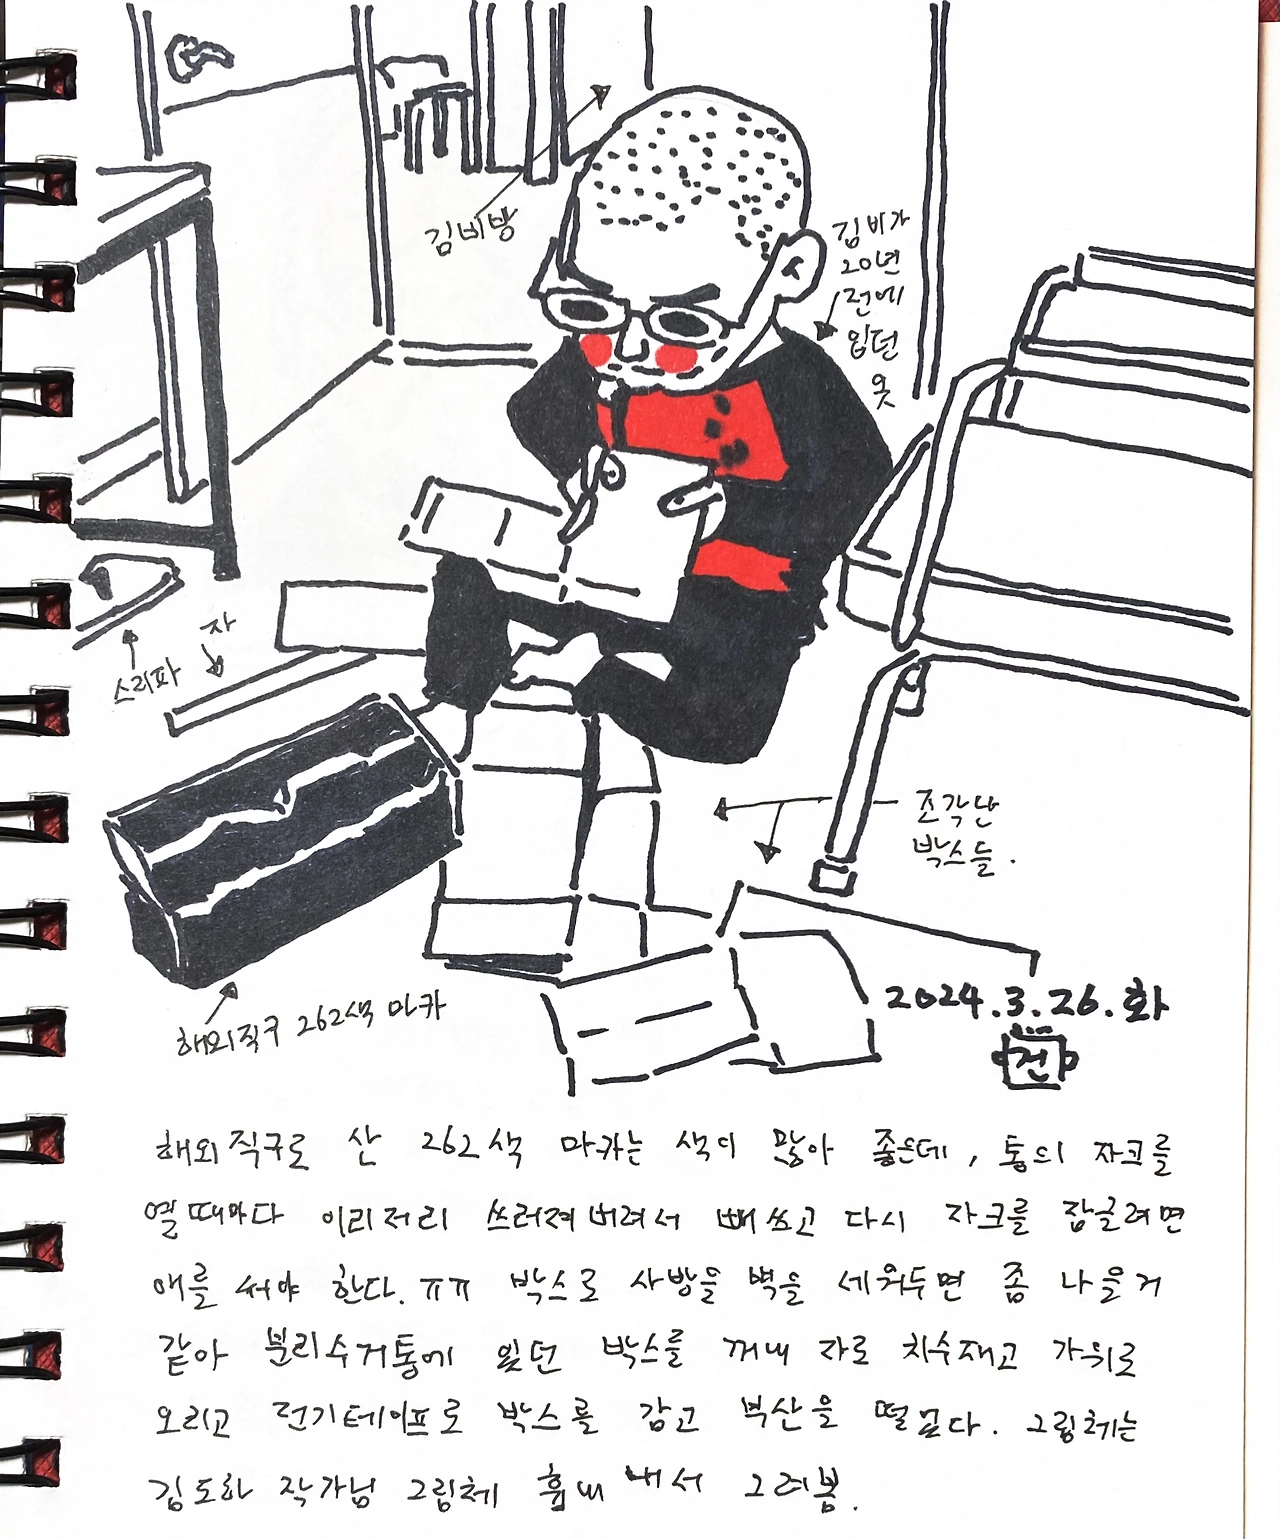 김비방
김비가
20년
전에
입던
옷
자
스리파
조각난
박스들.
해외직구 262색 마카
2024.3.26.화
건
해외직구로 산 262색 마카는 색이 많아 좋은데, 통의 자크를
열때마다 이리저리 쓰러져버려서 빼쓰고 다시 자크를 잠글려면
애를 써야 한다.ㅠㅠ 박스로 사방을 벽을 세워두면 좀 나을거
같아 분리수거통에 있던 박스를 꺼내 자로 치수재고 가위로
오리고 전기테이프로 박스를 감고 부산을 떨었다. 그림체는
김도화 작가님 그림체 흉내 내서 그려봄.